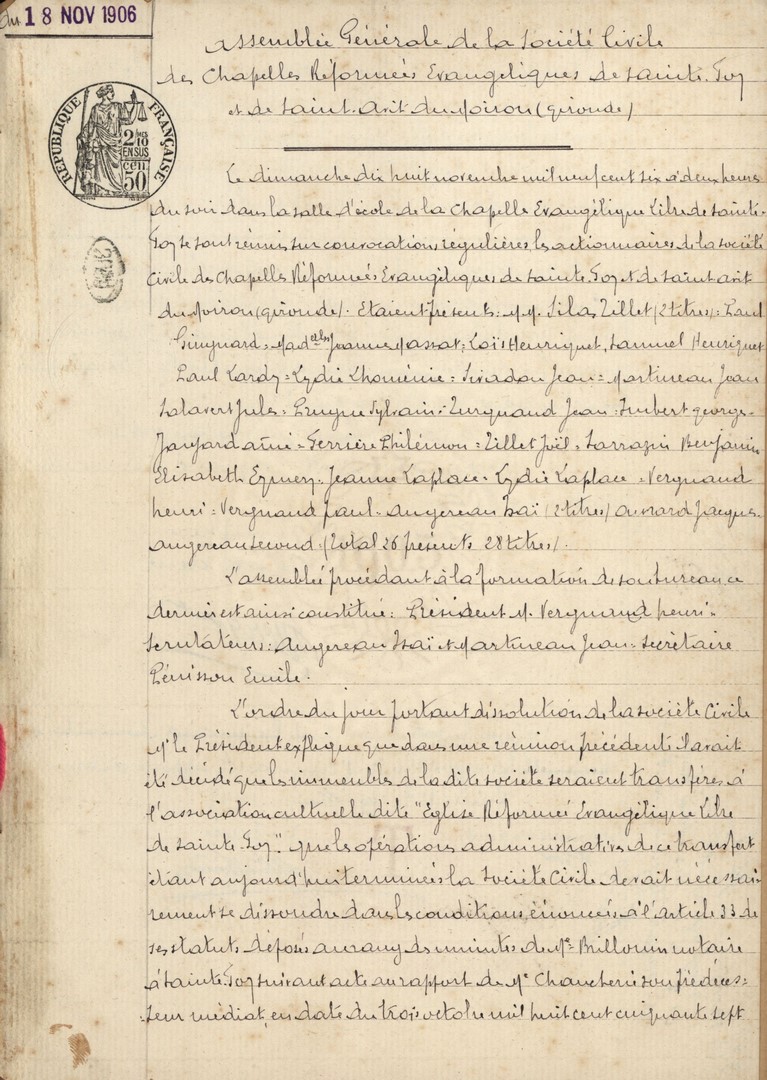 du 18 NOV 1906
Assemblée Générale de la Société Civile
des Chapelles Réformées Evangéliques de Sainte-Foy
et de Saint-Avit du Moiron (Gironde)
RÉPUBLIQUE FRANÇAISE
2/10 EN SUS
50 cen
Le dimanche dix huit novembre mil neuf cent six à deux heures
du soir dans la salle d'école de la Chapelle Evangélique Libre de Sainte-
Foy se sont réunis sur convocations régulières les actionnaires de la société
Civile des Chapelles Réformées Evangéliques de Sainte Foy et de Saint Avit
du Moiron (gironde). Etaient présents: M.M. Silas Tillet (2 titres): Paul
Guignard = Mad elles Jeanne Massat: Loïs Henriquet, Samuel Henriquet
Paul Lardy = Lydie Lhoménie = Sivadon Jean = Martineau Jean
Salavert Jules = Brugue Sylvain: Turquaud Jean: Imbert georges-
Jaufard aîné = Ferrière Philémon = Tillet Joël = Sarrazin Benjamin
Elisabeth Eymery. Jeanne Laplace = Lydie Laplace = Vergnaud
henri = Vergnaud paul = Augereau Isaï (2 titres) Amard Jacques.
augereau second. (Total 26 présents 28 titres).
L'assemblée procédant à la formation de son bureau ce
dernier est ainsi constitué: Président M. Vergnaud henri =
Scrutateurs: Augereau Isaï et Martineau Jean = Secrétaire
Pénisson Emile.
L'ordre du jour portant dissolution de la société Civile
Mr le Président explique que dans une réunion précédente il avait
été décidé que les immeubles de la dite société seraient transférés à
l'association cultuelle dite "Eglise Réformée Evangélique Libre
de Sainte-Foy". que les opérations administratives de ce transfert
étant aujourd'hui terminées la Société Civile devait nécessai-
rement se dissoudre dans les conditions énoncées à l'article 33 de
ses statuts déposés au rang des minutes de Me Brillouin notaire
à Sainte-Foy suivant acte au rapport de Me Chancherie son prédéces=
seur médiat, en date du trois octobre mil huit cent cinquante sept